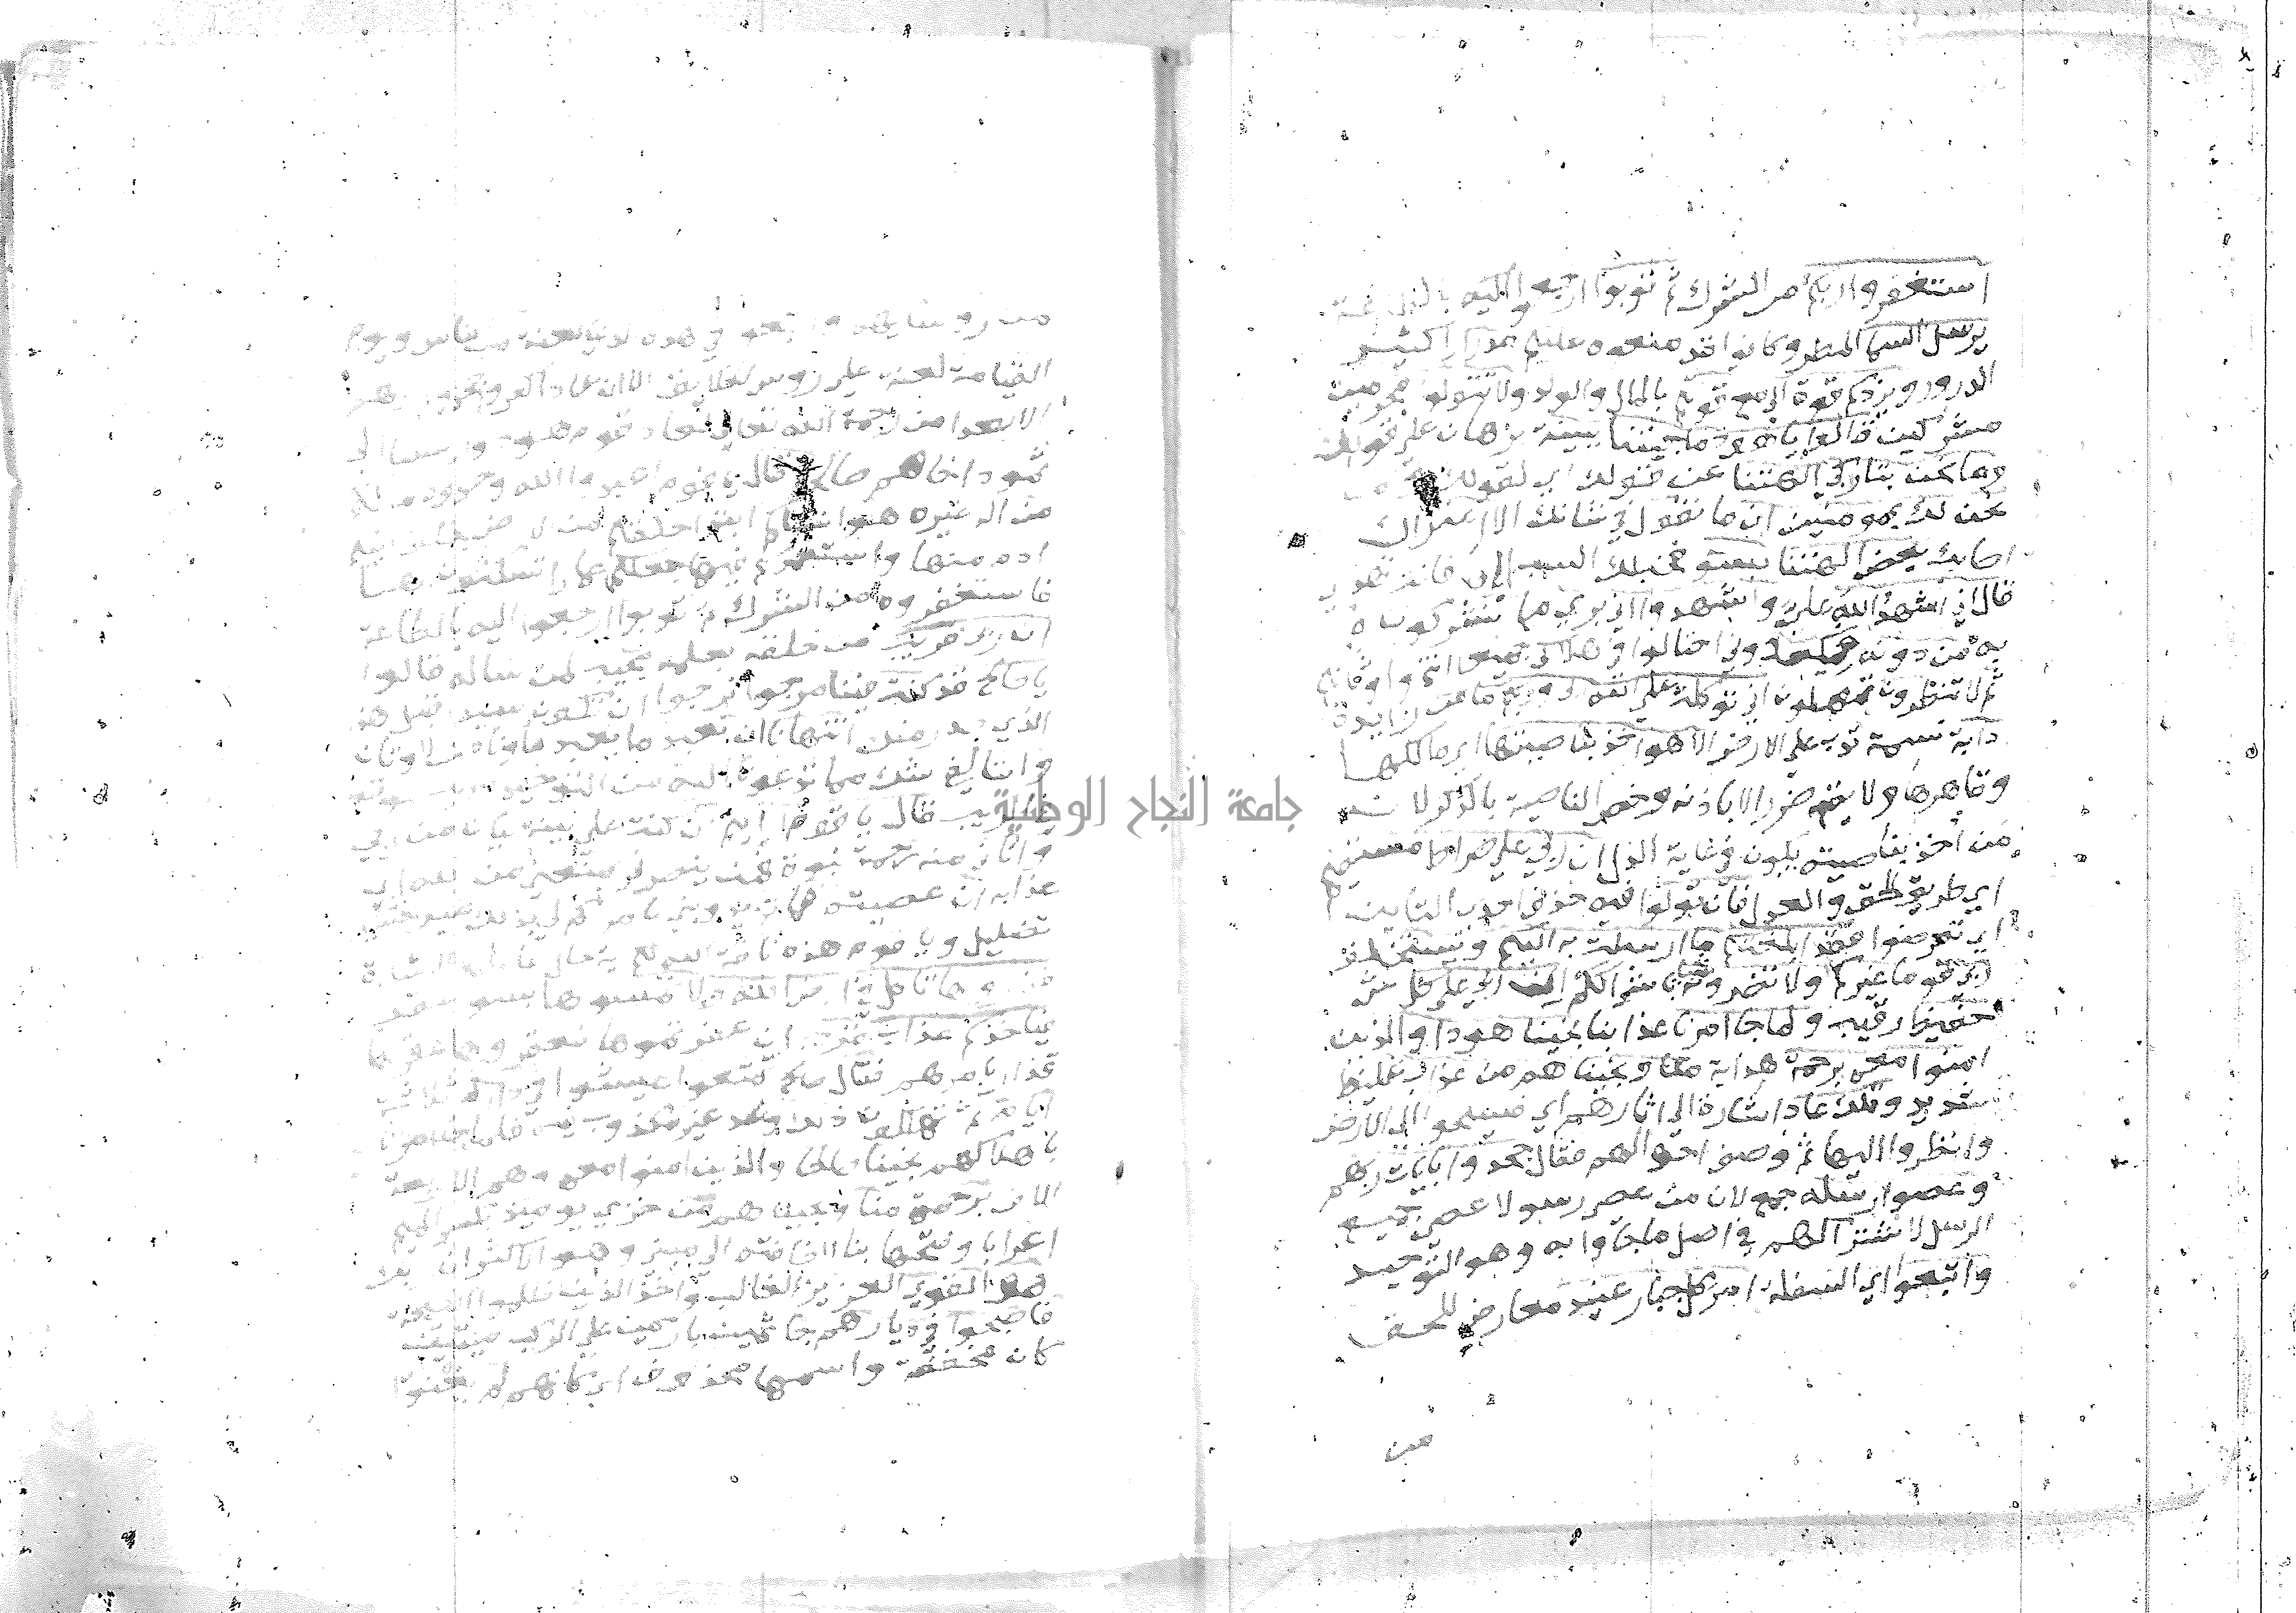 استغفروا ربكم من الشرك ثم توبوا ارجعوا اليه بالطاعة
يرسل السما المطر وكانوا قد منعوه عليكم مدرارا كثير
الدرور ويزدكم قوة الي مع قوتكم بالمال والولد ولا تتولوا مجرمين
مشركين قالوا يا هود ما جيتنا ببينة برهان علي قولك
وما نحن بتاركي الهتنا عن قولك اي لقولك وما
نحن لك بمومنين ان ما نقول في شانك الا اعتراك
اصابك بعض الهتنا بسو لسبك اياها فانت تهذي
قال اني اشهد الله علي واشهدوا اني بري مما تشركون ه
به من دونه فكيدوني احتالوا في هلاكي جميعا انتم واوثانكم
ثم لا تنظرون تمهلون اني توكلت علي الله ربي وربكم ما من زايدة
دابة نسمة تدب علي الارض الا هو اخذ بناصيتها اي مالكها
وقاهرها ولا نفع ولا ضرر الا باذنه وخص الناصية بالذكر لان
من اخذ بناصيته يكون في غاية الذل ان ربي علي صراط مستقيم
اي طريق الحق والعدل فان تولوا فيه حذف احدي التايين
اي تعرضوا فقد ابلغتكم ما ارسلت به اليكم ويستخلف
ربي قوما غيركم ولا تضرونه شيا باشراككم ان ربي علي كل شي
حفيظ رقيب ولما جا امرنا عذابنا نجينا هودا والذين
امنوا معه برحمة هداية منا ونجيناهم من عذاب غليظ
شديد وتلك عاد اشارة الي اثارهم اي فسيحوا في الارض
وانظروا اليها ثم وصف احوالهم فقال جحدوا بايات ربهم
وعصوا رسله جمع لان من عصي رسولا عصي جميع
الرسل لاشتراكهم في اصل ما جاوا به وهو التوحيد
واتبعوا اي السفلة امر كل جبار عنيد معارض للحق
من
من روسايهم واتبعوا في هذه الدنيا لعنة من الناس ويوم
القيامة لعنة علي روس الخلايق الا ان عادا كفروا جحدوا ربهم
الا بعدا من رحمة الله تعالي لعاد قوم هود وارسلنا الي
ثمود اخاهم صالحا قال يا قوم اعبدوا الله وحدوه ما لكم
من اله غيره هو انشاكم ابتدا خلقكم من الارض بخلق ابيكم
ادم منها واستعمركم فيها جعلكم عمارا تسكنون بها
فاستغفروه من الشرك ثم توبوا ارجعوا اليه بالطاعة
ان ربي قريب من خلقه بعلمه مجيب لمن ساله قالوا
يا صالح قد كنت فينا مرجوا نرجوا ان تكون سيدا قبل هذا
الذي صدر منك اتنهانا ان نعبد ما يعبد اباونا من الاوثان
واننا لفي شك مما تدعونا اليه من التوحيد مريب موقع
في الريب قال يا قوم ارايتم ان كنت علي بينة بيان من ربي
واتاني منه رحمة نبوة فمن ينصرني يمنعني من الله اي
عذابه ان عصيته فما تزيدونني بامركم لي بذلك غير تخسير
تضليل ويا قوم هذه ناقة الله لكم اية حال عامله الاشارة
فذروها تاكل في ارض الله ولا تمسوها بسو عقر
فياخذكم عذاب قريب ان عقرتموها فعقروها عقرها
قدار بامرهم فقال صالح تمتعوا عيشوا في داركم ثلاثة
ايام ثم تهلكون ذلك وعد غير مكذوب فيه فلما جا امرنا
باهلاكهم نجينا صالحا والذين امنوا معه وهم اربعة
الاف برحمة منا ونجيناهم من خزي يوميذ بكسر الميم
اعرابا وفتحها بنا لاضافته الي مبني وهو الاكثر ان ربك
هو القوي العزيز الغالب واخذ الذين ظلموا الصيحة
فاصبحوا في ديارهم جاثمين باركين علي الركب ميتين
كان مخففة واسمها محذوف اي كانهم لم يغنوا
جامعة النجاح الوطنية